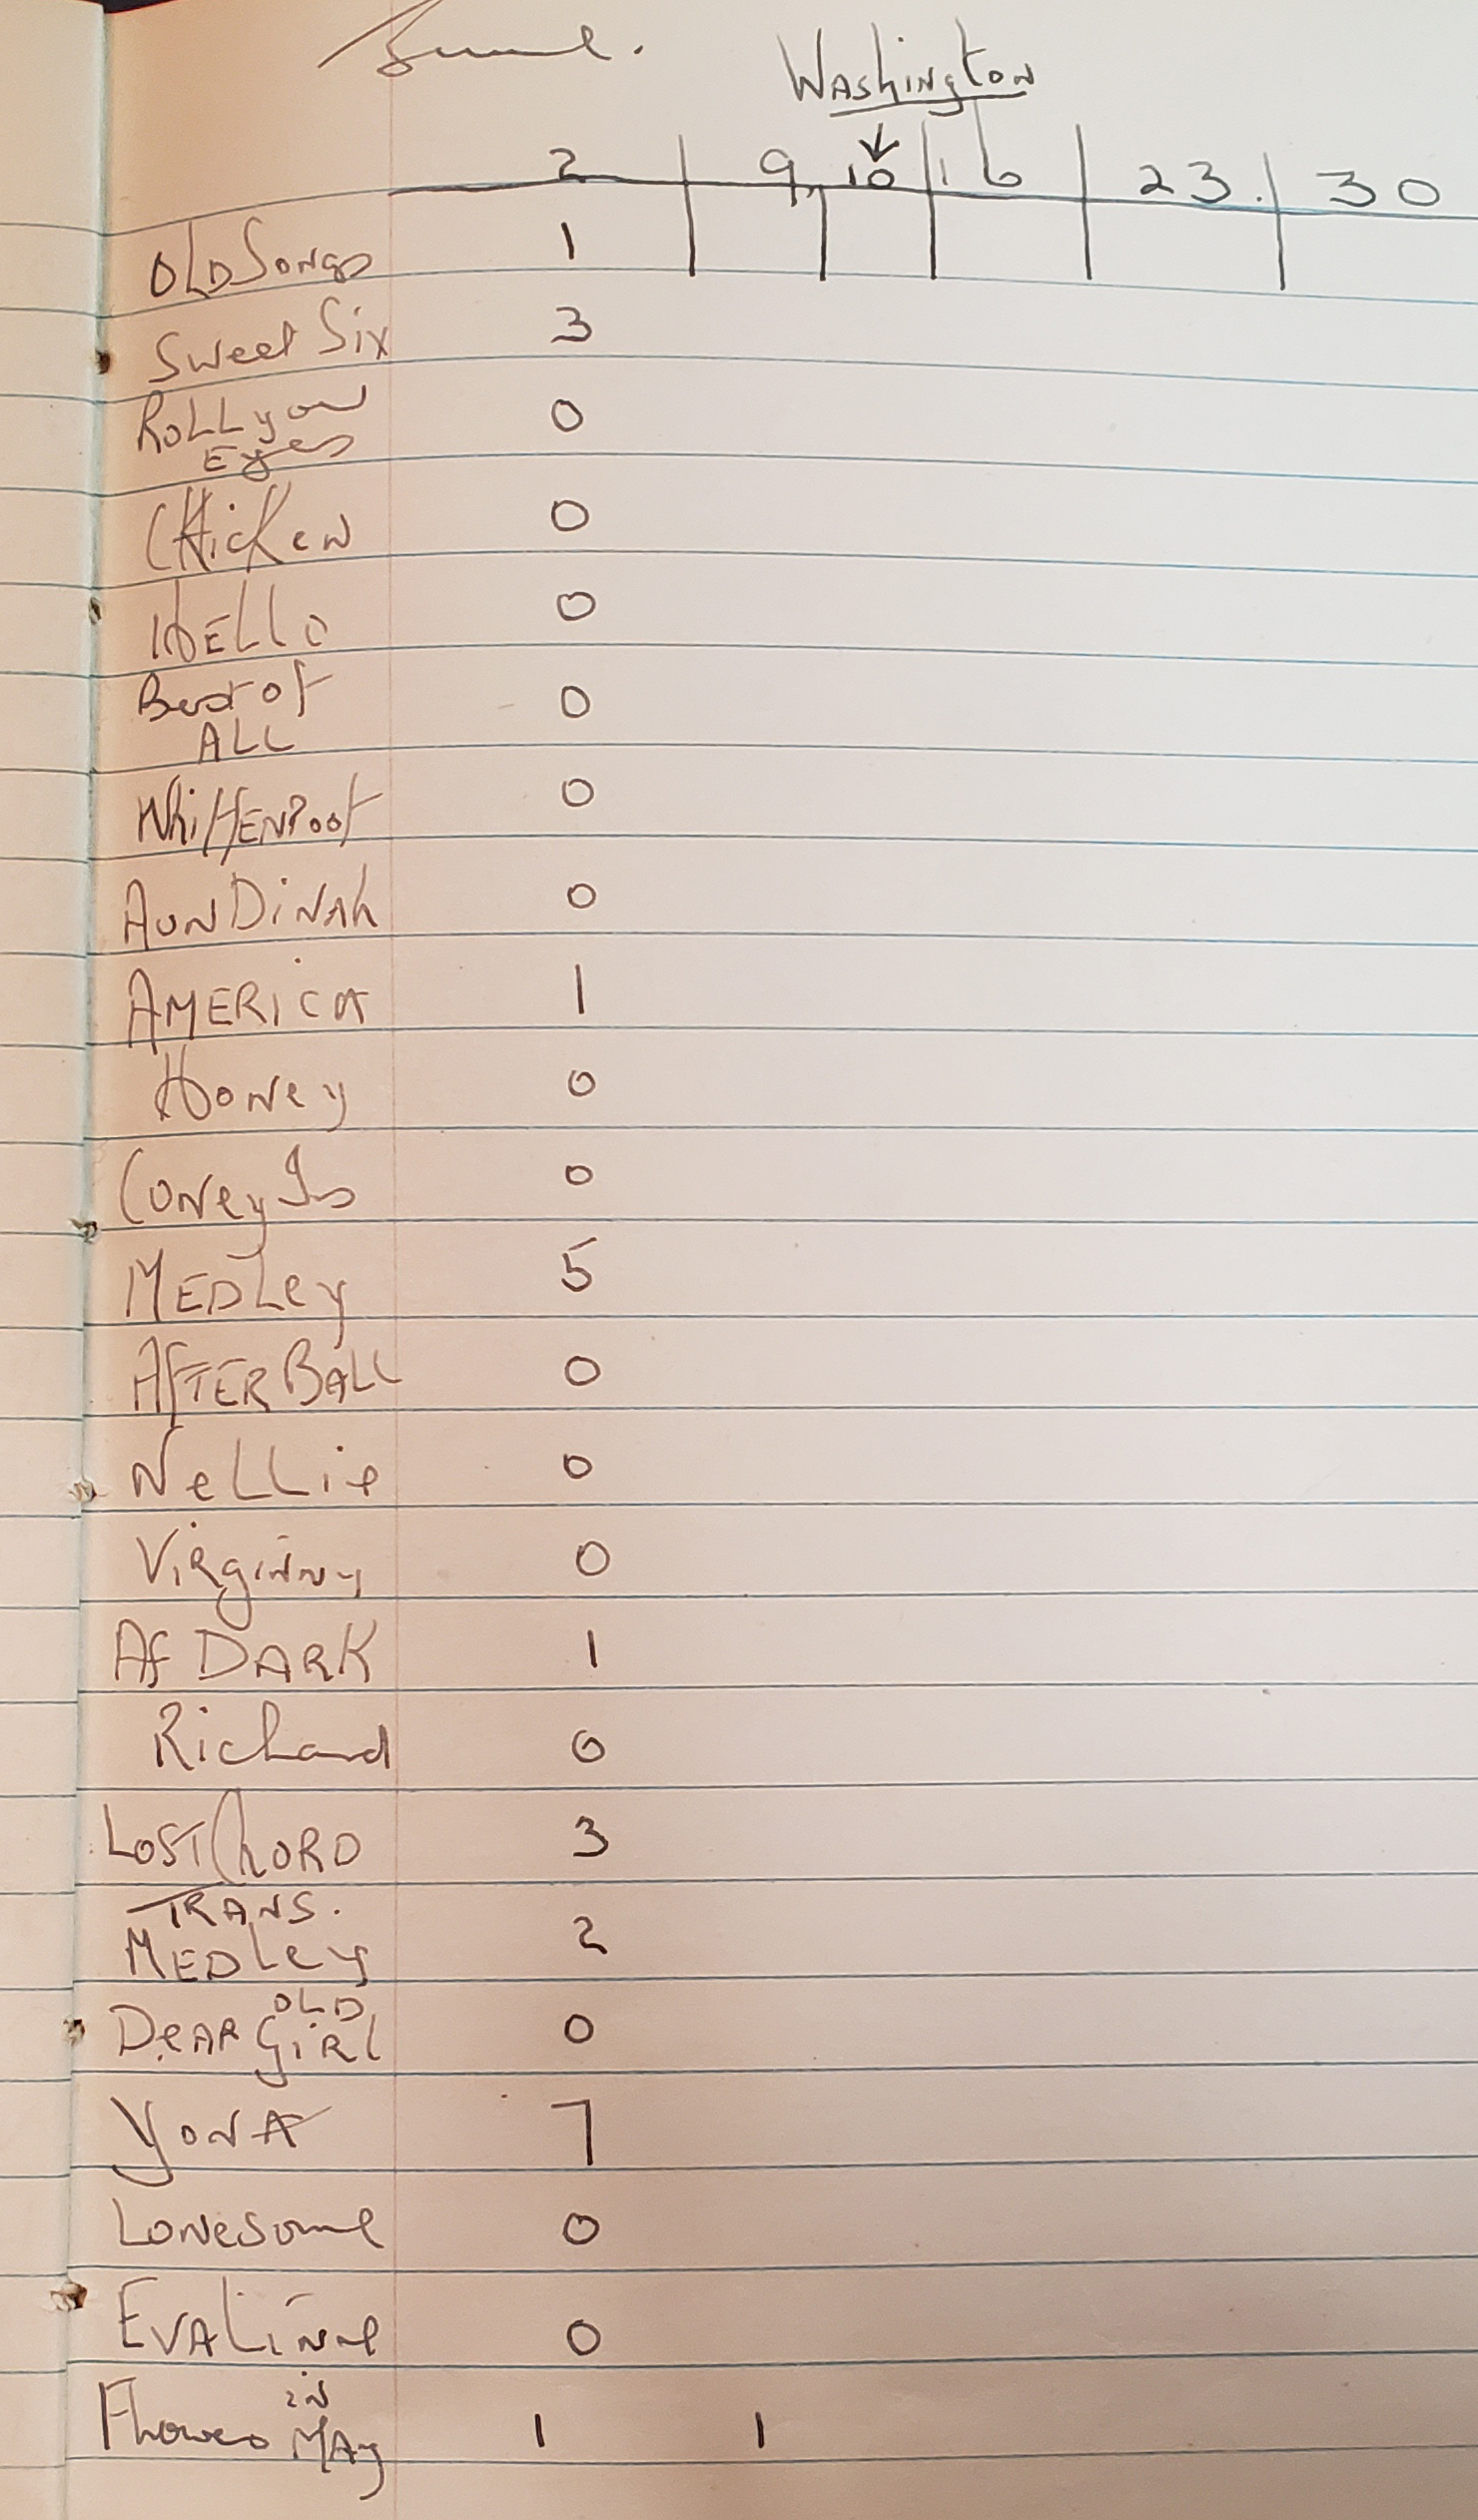 June.
Washington
↓
2 9, 10 16 23. 30
OLD Songs 1
Sweet Six 3
ROLL your 0
Eyes
CHicKen 0
HELLO 0
Best of 0
ALL
WhiffENPoof 0
AUN DiNAh 0
AMERiCA 1
Honey 0
Coney Is 0
MEDLey 5
AFTER BALL 0
NeLLie 0
ViRginny 0
Af DARK 1
Richard 0
LOST ChORD 3
TRANS. 2
MEDLey
OLD
DeAR GiRL 0
YONA 7
Lonesome 0
EVALine 0
in
Flowers MAy 1 1